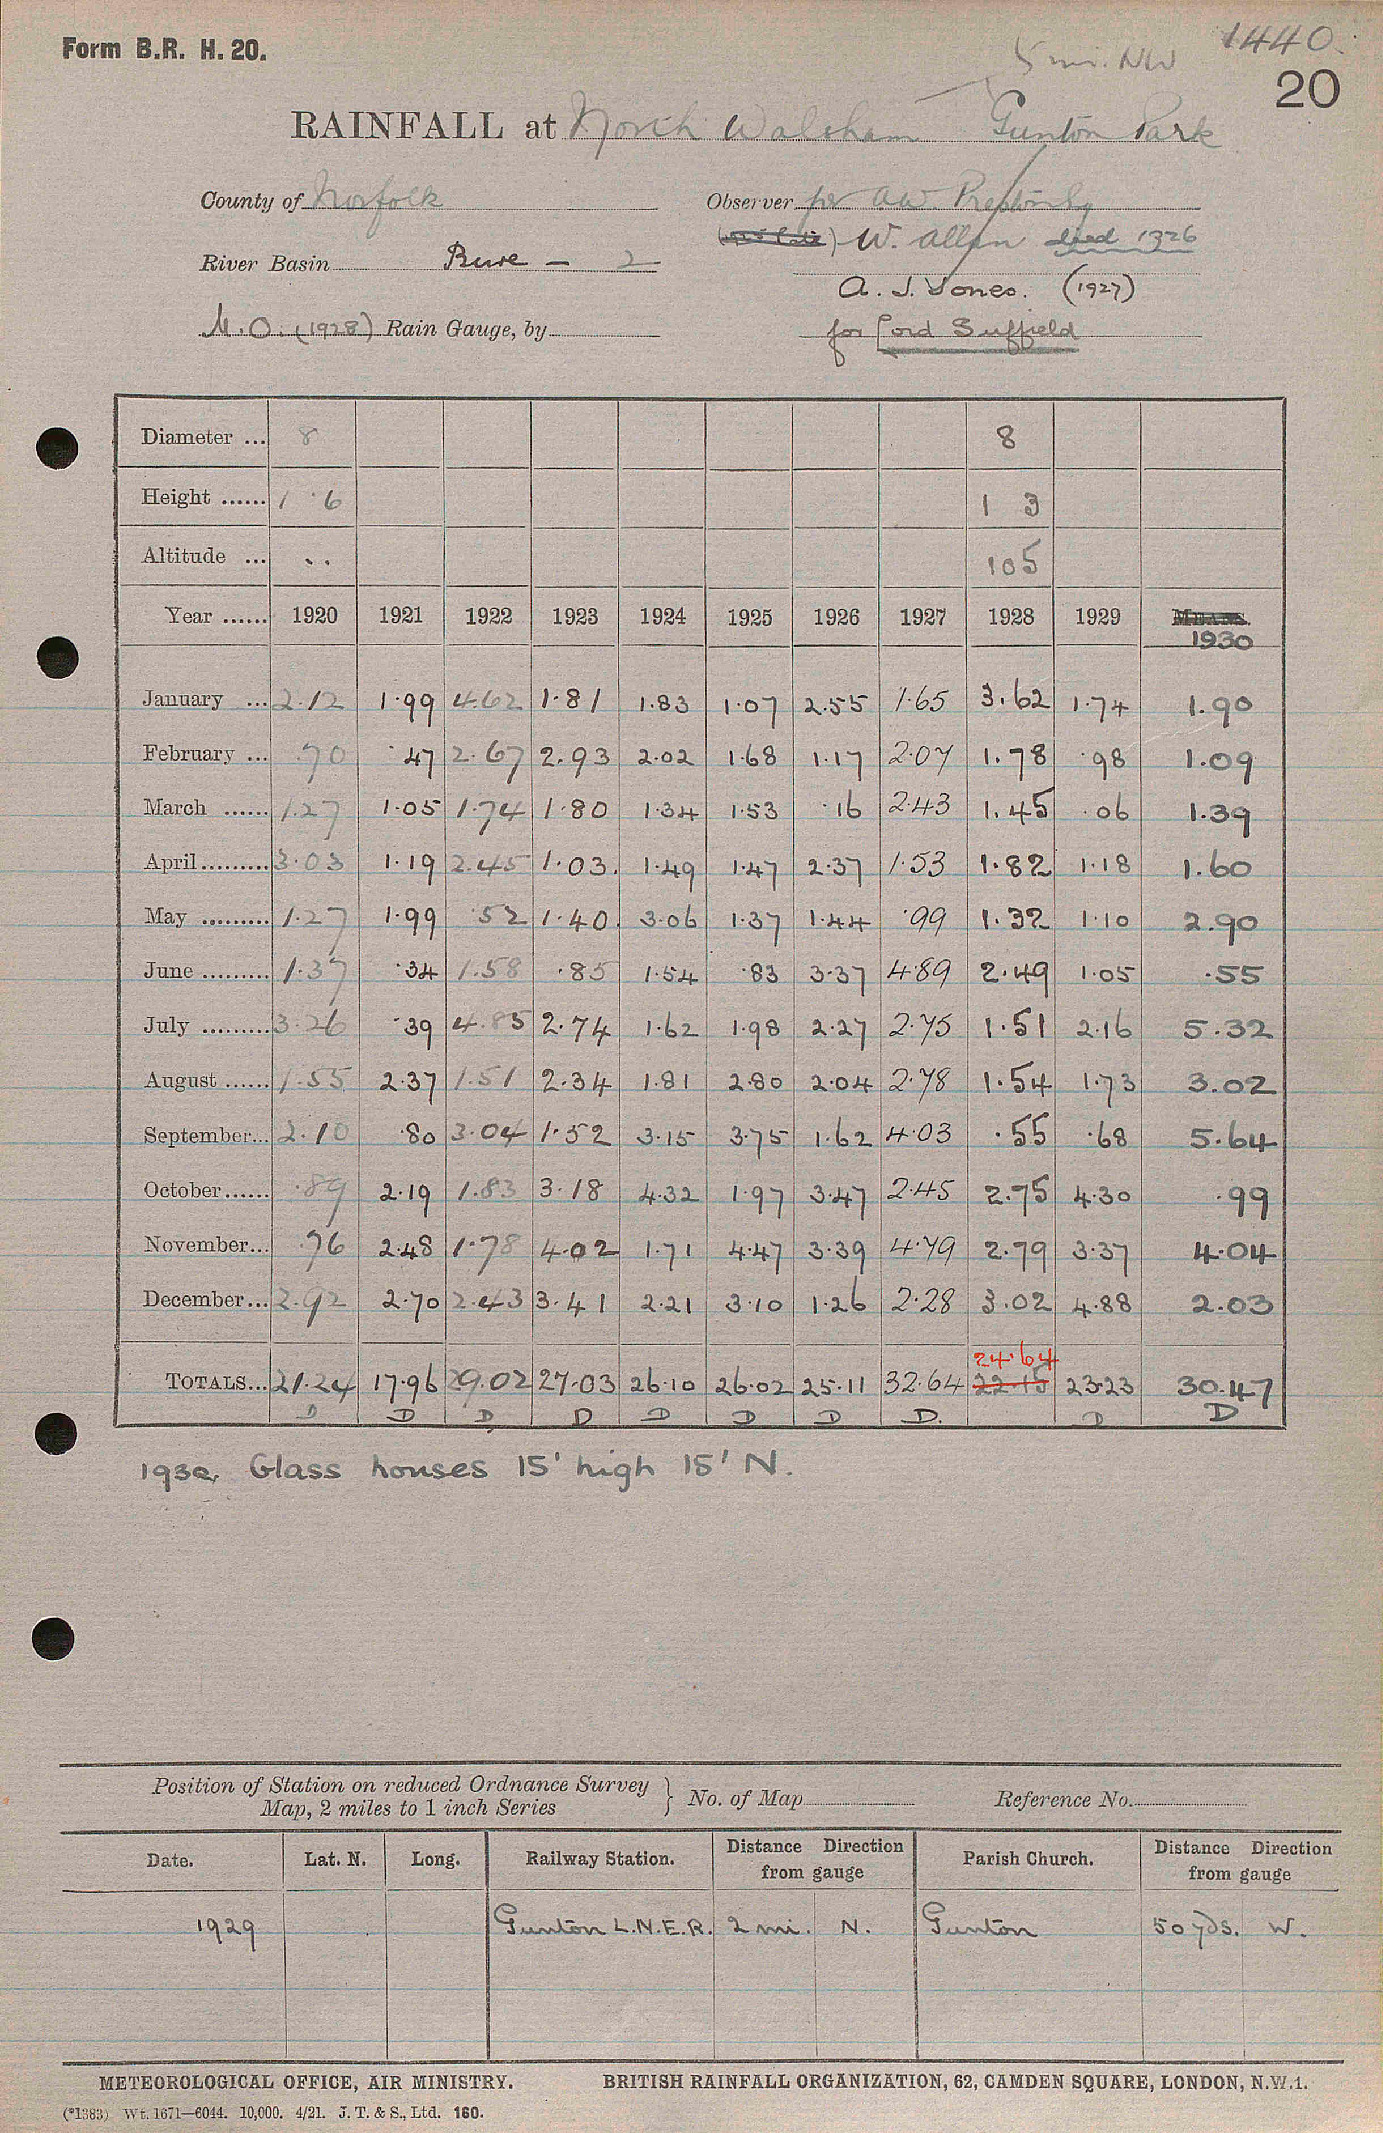 Form B.R. H. 20.
1440.
5 mi. NW
20
RAINFALL at North Walsham Gunton Park
County of Norfolk
Observer per A.W. Preston Esq
W. Allan died 1926
River Basin Bure - 2
A. J. Jones. (1927)
M.O. (1928) Rain Gauge, by
for Lord Suffield
Diameter ... 8 8
Height ...... 1 · 6 1 3
Altitude ... .. 105
Year ...... 1920 1921 1922 1923 1924 1925 1926 1927 1928 1929 MEANS.
1930
January ... 2.12 1.99 4.62 1.81 1.83 1.07 2.55 1.65 3.62 1.74 1.90
February ... .70 .47 2.67 2.93 2.02 1.68 1.17 2.07 1.78 .98 1.09
March ...... 1.27 1.05 1.74 1.80 1.34 1.53 .16 2.43 1.45 .06 1.39
April ......... 3.03 1.19 2.45 1.03. 1.49 1.47 2.37 1.53 1.82 1.18 1.60
May ......... 1.27 1.99 .52 1.40. 3.06 1.37 1.44 .99 1.32 1.10 2.90
June ......... 1.37 .34 1.58 .85 1.54 .83 3.37 4.89 2.49 1.05 .55
July ......... 3.26 .39 4.85 2.74 1.62 1.98 2.27 2.75 1.51 2.16 5.32
August ...... 1.55 2.37 1.51 2.34 1.81 2.80 2.04 2.78 1.54 1.73 3.02
September... 2.10 .80 3.04 1.52 3.15 3.75 1.62 4.03 .55 .68 5.64
October ...... .89 2.19 1.83 3.18 4.32 1.97 3.47 2.45 2.75 4.30 .99
November... .76 2.48 1.78 4.02 1.71 4.47 3.39 4.79 2.79 3.37 4.04
December ... 2.92 2.70 2.43 3.41 2.21 3.10 1.26 2.28 3.02 4.88 2.03
24.64
TOTALS... 21.24 17.96 29.02 27.03 26.10 26.02 25.11 32.64 22.15 23.23 30.47
D D D D D D D D. D D
1930. Glass houses 15' high 15' N.
Position of Station on reduced Ordnance Survey
Map, 2 miles to 1 inch Series } No. of Map Reference No.
Date. Lat. N. Long. Railway Station. Distance Direction from gauge Parish Church. Distance Direction from gauge
1929 Gunton L.N.E.R. 2 mi. N. Gunton 50 yds. W.
METEOROLOGICAL OFFICE, AIR MINISTRY. BRITISH RAINFALL ORGANIZATION, 62, CAMDEN SQUARE, LONDON, N.W.1.
(*1383) Wt. 1671—6044. 10,000. 4/21. J. T. & S., Ltd. 160.